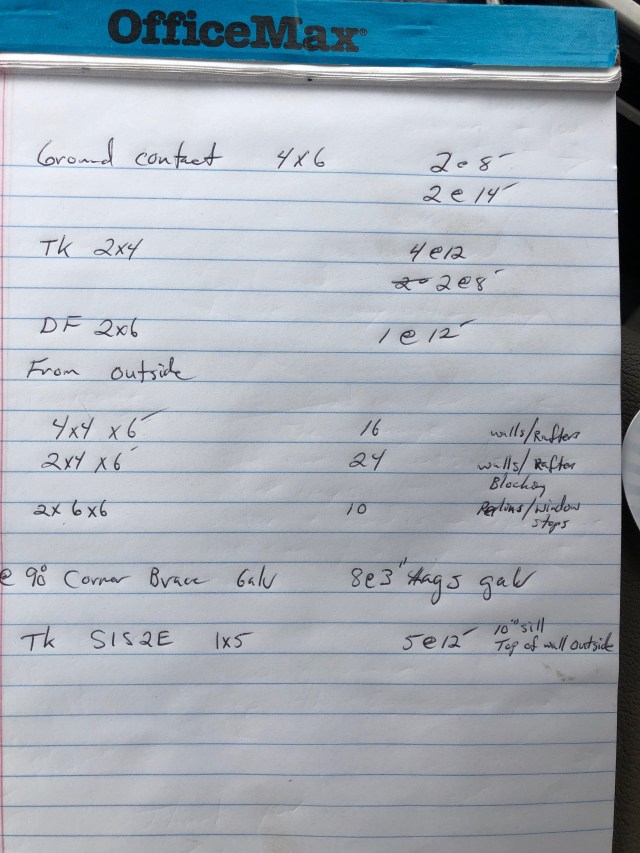 OfficeMax®
Ground contact 4x6 2@8'
2@14'
TK 2x4 4@12
2@8'
DF 2x6 1@12'
From outside
4x4 x6' 16 walls/Rafters
2x4 x6' 24 walls/Rafter
Blocking
2x6x6 10 Perlins/window
stops
@ 90° Corner Brace Galv 8@3" lags galv
Tk S1S2E 1x5 5@12' 10" sill
Top of wall outside